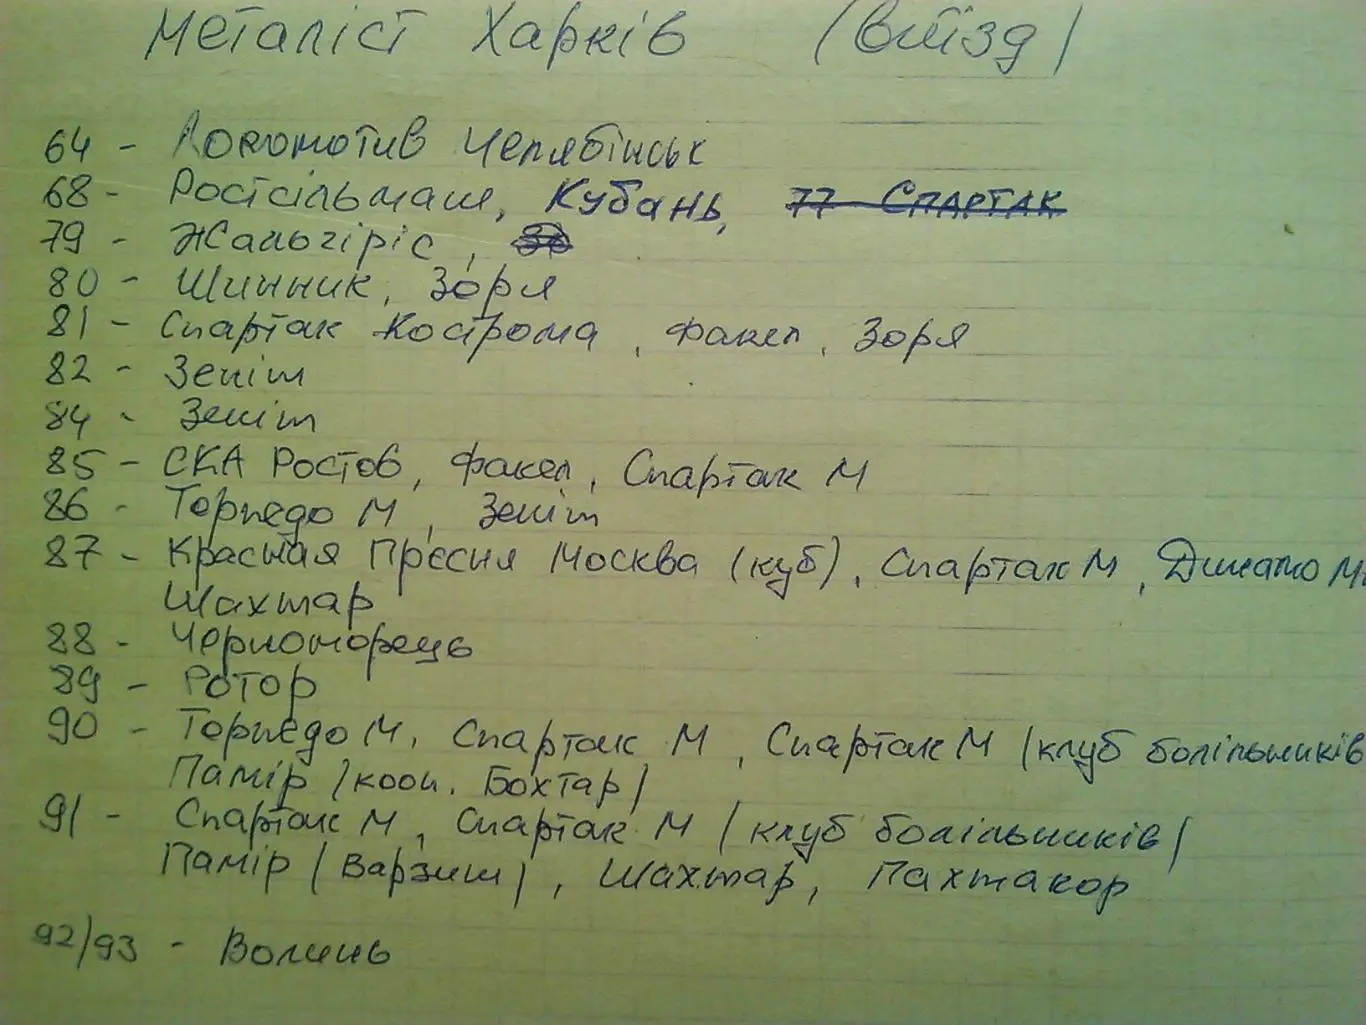 Металіст Харків (виїзд)
64 - Локомотив Челябінськ
68 - Ростсільмаш, Кубань, 77 Спартак
79 - Жальгіріс,
80 - Шинник, Зоря
81 - Спартак Кострома, Факел, Зоря
82 - Зеніт
84 - Зеніт
85 - СКА Ростов, Факел, Спартак М
86 - Торпедо М, Зеніт
87 - Красная Прєсня Москва (куб), Спартак М, Динамо М
Шахтар
88 - Черноморець
89 - Ротор
90 - Торпедо М, Спартак М, Спартак М (клуб болільників
Памір (кооп. Бохтар)
91 - Спартак М, Спартак М (клуб болільників)
Памір (Варзиш), Шахтар, Пахтакор
92/93 - Волинь